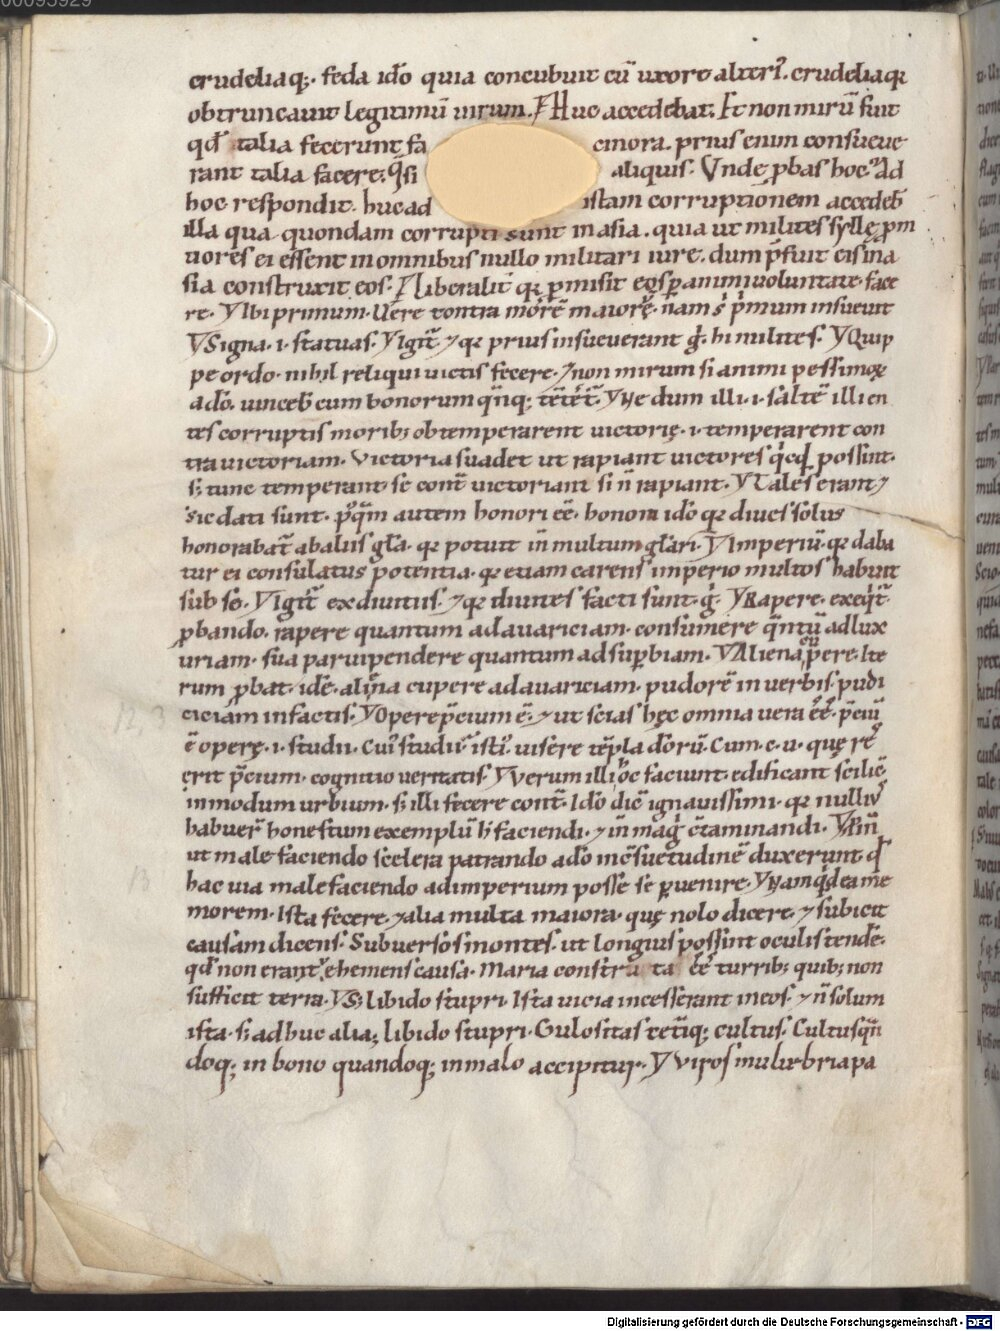 00095929
crudeliaq;. feda idō quia concubuit cū uxore alteri᾽. crudeliaq;
obtruncauit legitimū uirum. Huc accedebat. Et non mirū fuit
qđ talia fecerunt fa cinora. prius enim consueue
rant talia facere. q̄si aliquis. Vnde ꝓbas hoc. Ad
hoc respondit. huc ad istam corruptionem accedeb̄
illa qua quondam corrupti sunt in asia. quia ut milites syllę ꝓm
tiores ei essent in omnibus nullo militari iure. dum p̄fuit eis in a
sia constrinxit eos.
re. Ibi primum. Vere contra morē maiorū. nam s̄ p̄mum insueuit
Signa. i. statuas. Igit᷑ ⁊ qꝛ prius insueuerant g̊. hi milites. Quip
pe ordo. nihil reliqui uictis fecere. ⁊ non mirum si animi pessimoꝝ
adō. uinceb̄ cum bonorum
Ne dum illi. i. saltē illi en
tes corruptis morib; obtemperarent uictorię. i. temperarent con
tra uictoriam. Victoria suadet ut rapiant uictores q̇cqđ possint.
s; tunc temperant se cont̄ uictoriam si n̄ rapiant. Tales erant ⁊
sic dati sunt. p̄q̄m autem honori eē. honori idō qꝛ diues solus
honorabat᷑ ab aliis gl̄a. qꝛ potuit in multum gl̄ari. Imperiū. qꝛ daba
tur ei consulatus potentia. qꝛ etiam carens imperio multos habuit
sub se. Igit᷑ ex diuitiis. ⁊ qꝛ diuites facti sunt. g̊. Rapere. exeq̇t᷑
ꝓbando. rapere quantum ad auariciam. consumere q̄ntū ad lux
uriam. sua paruipendere quantum ad suꝑbiam. Aliena p̄pere. Ite
rum ꝓbat. idē. aliena cupere ad auariciam. pudorē in uerbis. pudi
ciciam in factis. Opere p̄cium ē. ⁊ ut scias hęc omnia uera eē. p̄ciū
ē operę. i. studii. cui᾽ studiū isti᾽. uisere tēpla dōrū. Cum. c. u. quę rē
erit p̄cium. cognitio ueritatis. Verum illi hoc faciunt. edificant scilic̄
in modum urbium. s; illi fecere cont̄. Idō dic̄ ignauissimi. qꝛ nulliᵘ
habuer̄ honestum exemplū
ut male faciendo scelera patrando adō in c̄suetudinē duxerunt. qđ
hac uia male faciendo ad imperium posse se ꝑuenire. Nam qđ ea me
morem. Ista fecere. ⁊ alia multa maiora. quę nolo dicere. ⁊ subicit
causam dicens. Subuersos montes. ut longius possint oculis tendē.
qđ non erant᷑. ehemens causa. Maria constructa eē turrib; quib; non
sufficit terra. S; libido stupri. Ista uicia incesserant in eos. ⁊ n̄ solum
ista. s; adhuc alia; libido stupri. Gulositas cet̄iq; cultus. Cultus q̄n
doq; in bono quandoq; in malo accipitur. Viros mulieb̄ria pa
Digitalisierung gefördert durch die Deutsche Forschungsgemeinschaft - DFG